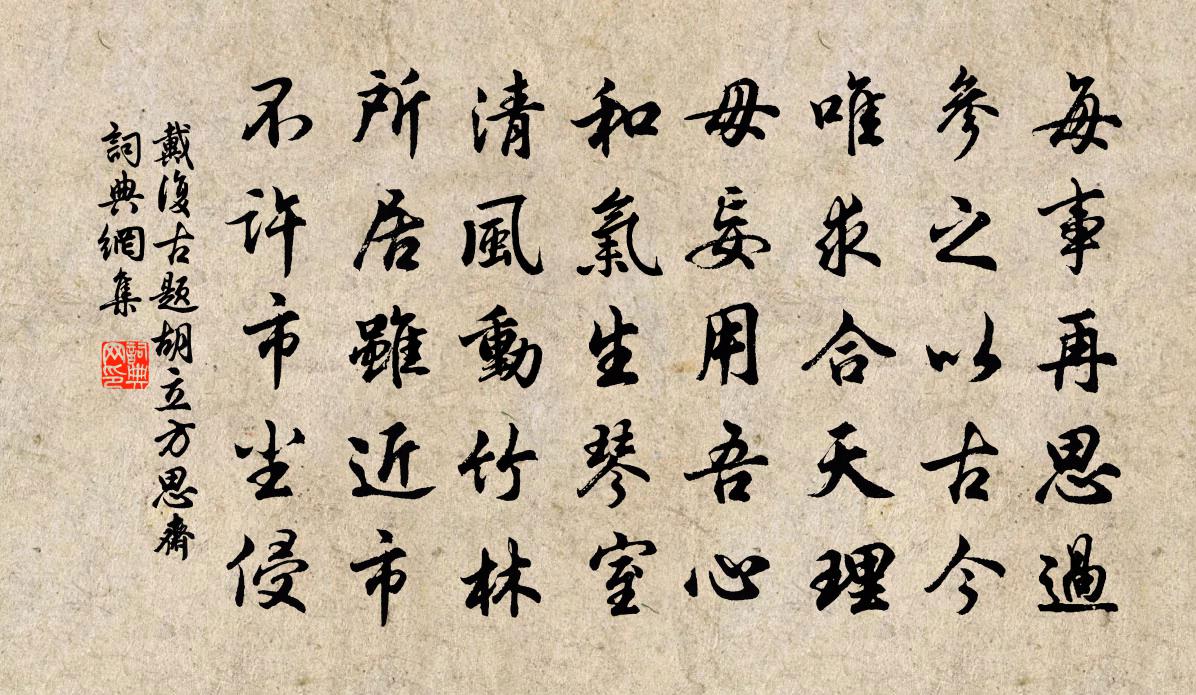 每事再思過
參之以古今
唯求合天理
毋妄用吾心
和氣生琴室
清風動竹林
所居雖近市
不許市尘侵
戴復古題胡立方思齋
詞典網集
詞典
网印